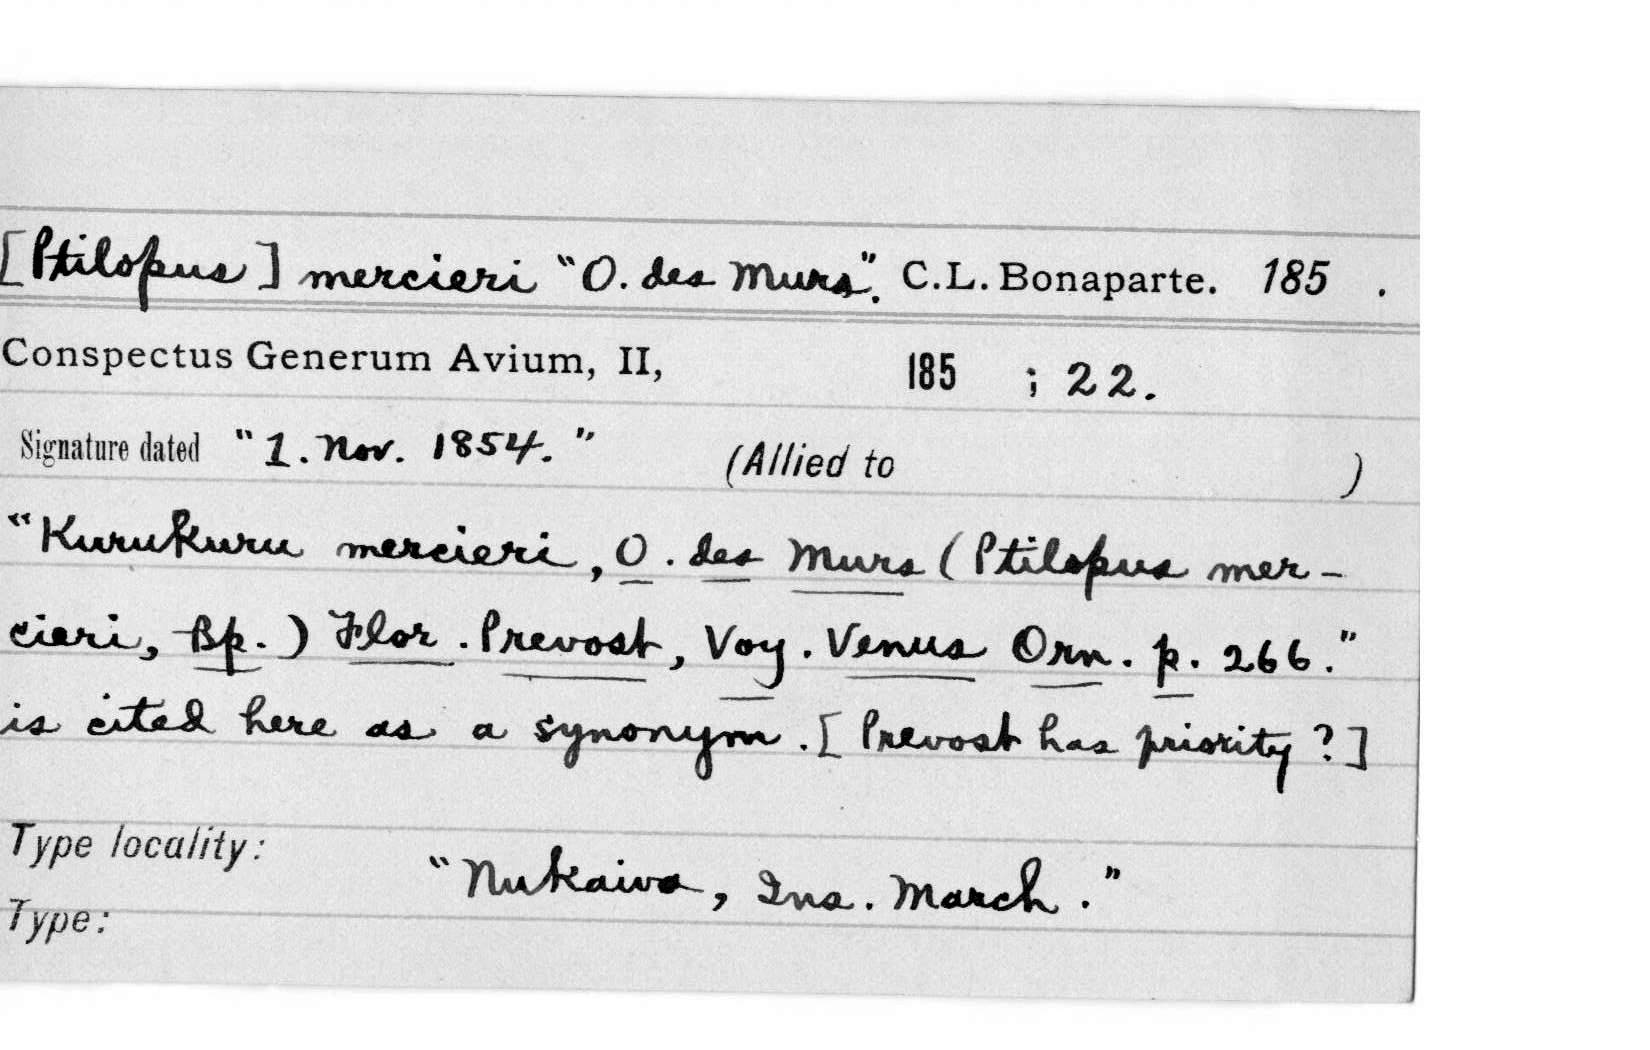 [Ptilopus] mercieri "O. des Murs". C.L. Bonaparte. 185 .
Conspectus Generum Avium, II, 185 ; 22.
Signature dated "1. Nov. 1854." (Allied to )
"Kurukuru mercieri, O. des Murs (Ptilopus mer-
cieri, Bp.) Flor. Prevost, Voy. Venus Orn. p. 266."
is cited here as a synonym. [Prevost has priority?]
Type locality: "Nukaiva, Ins. March."
Type: